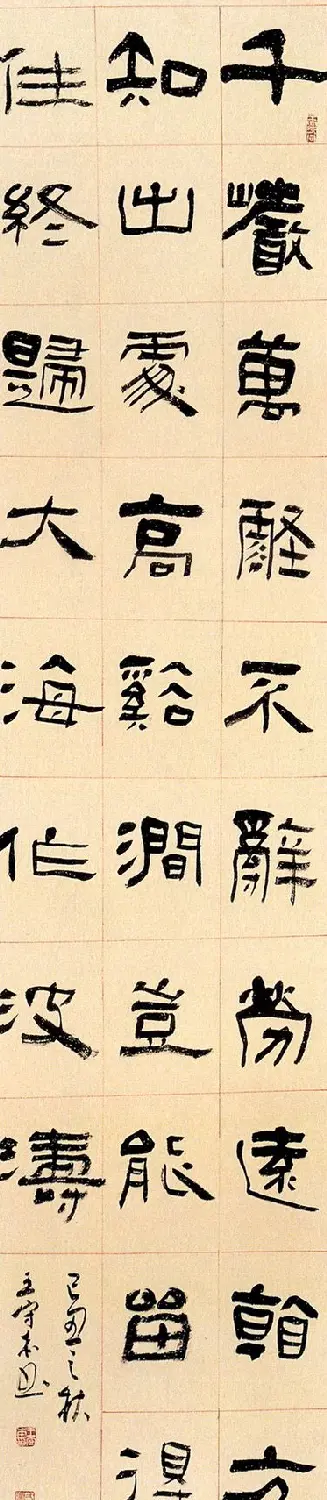 千巖萬壑不辭勞遠看方
知出處高谿澗豈能留得
住終歸大海作波濤
之秋
王守